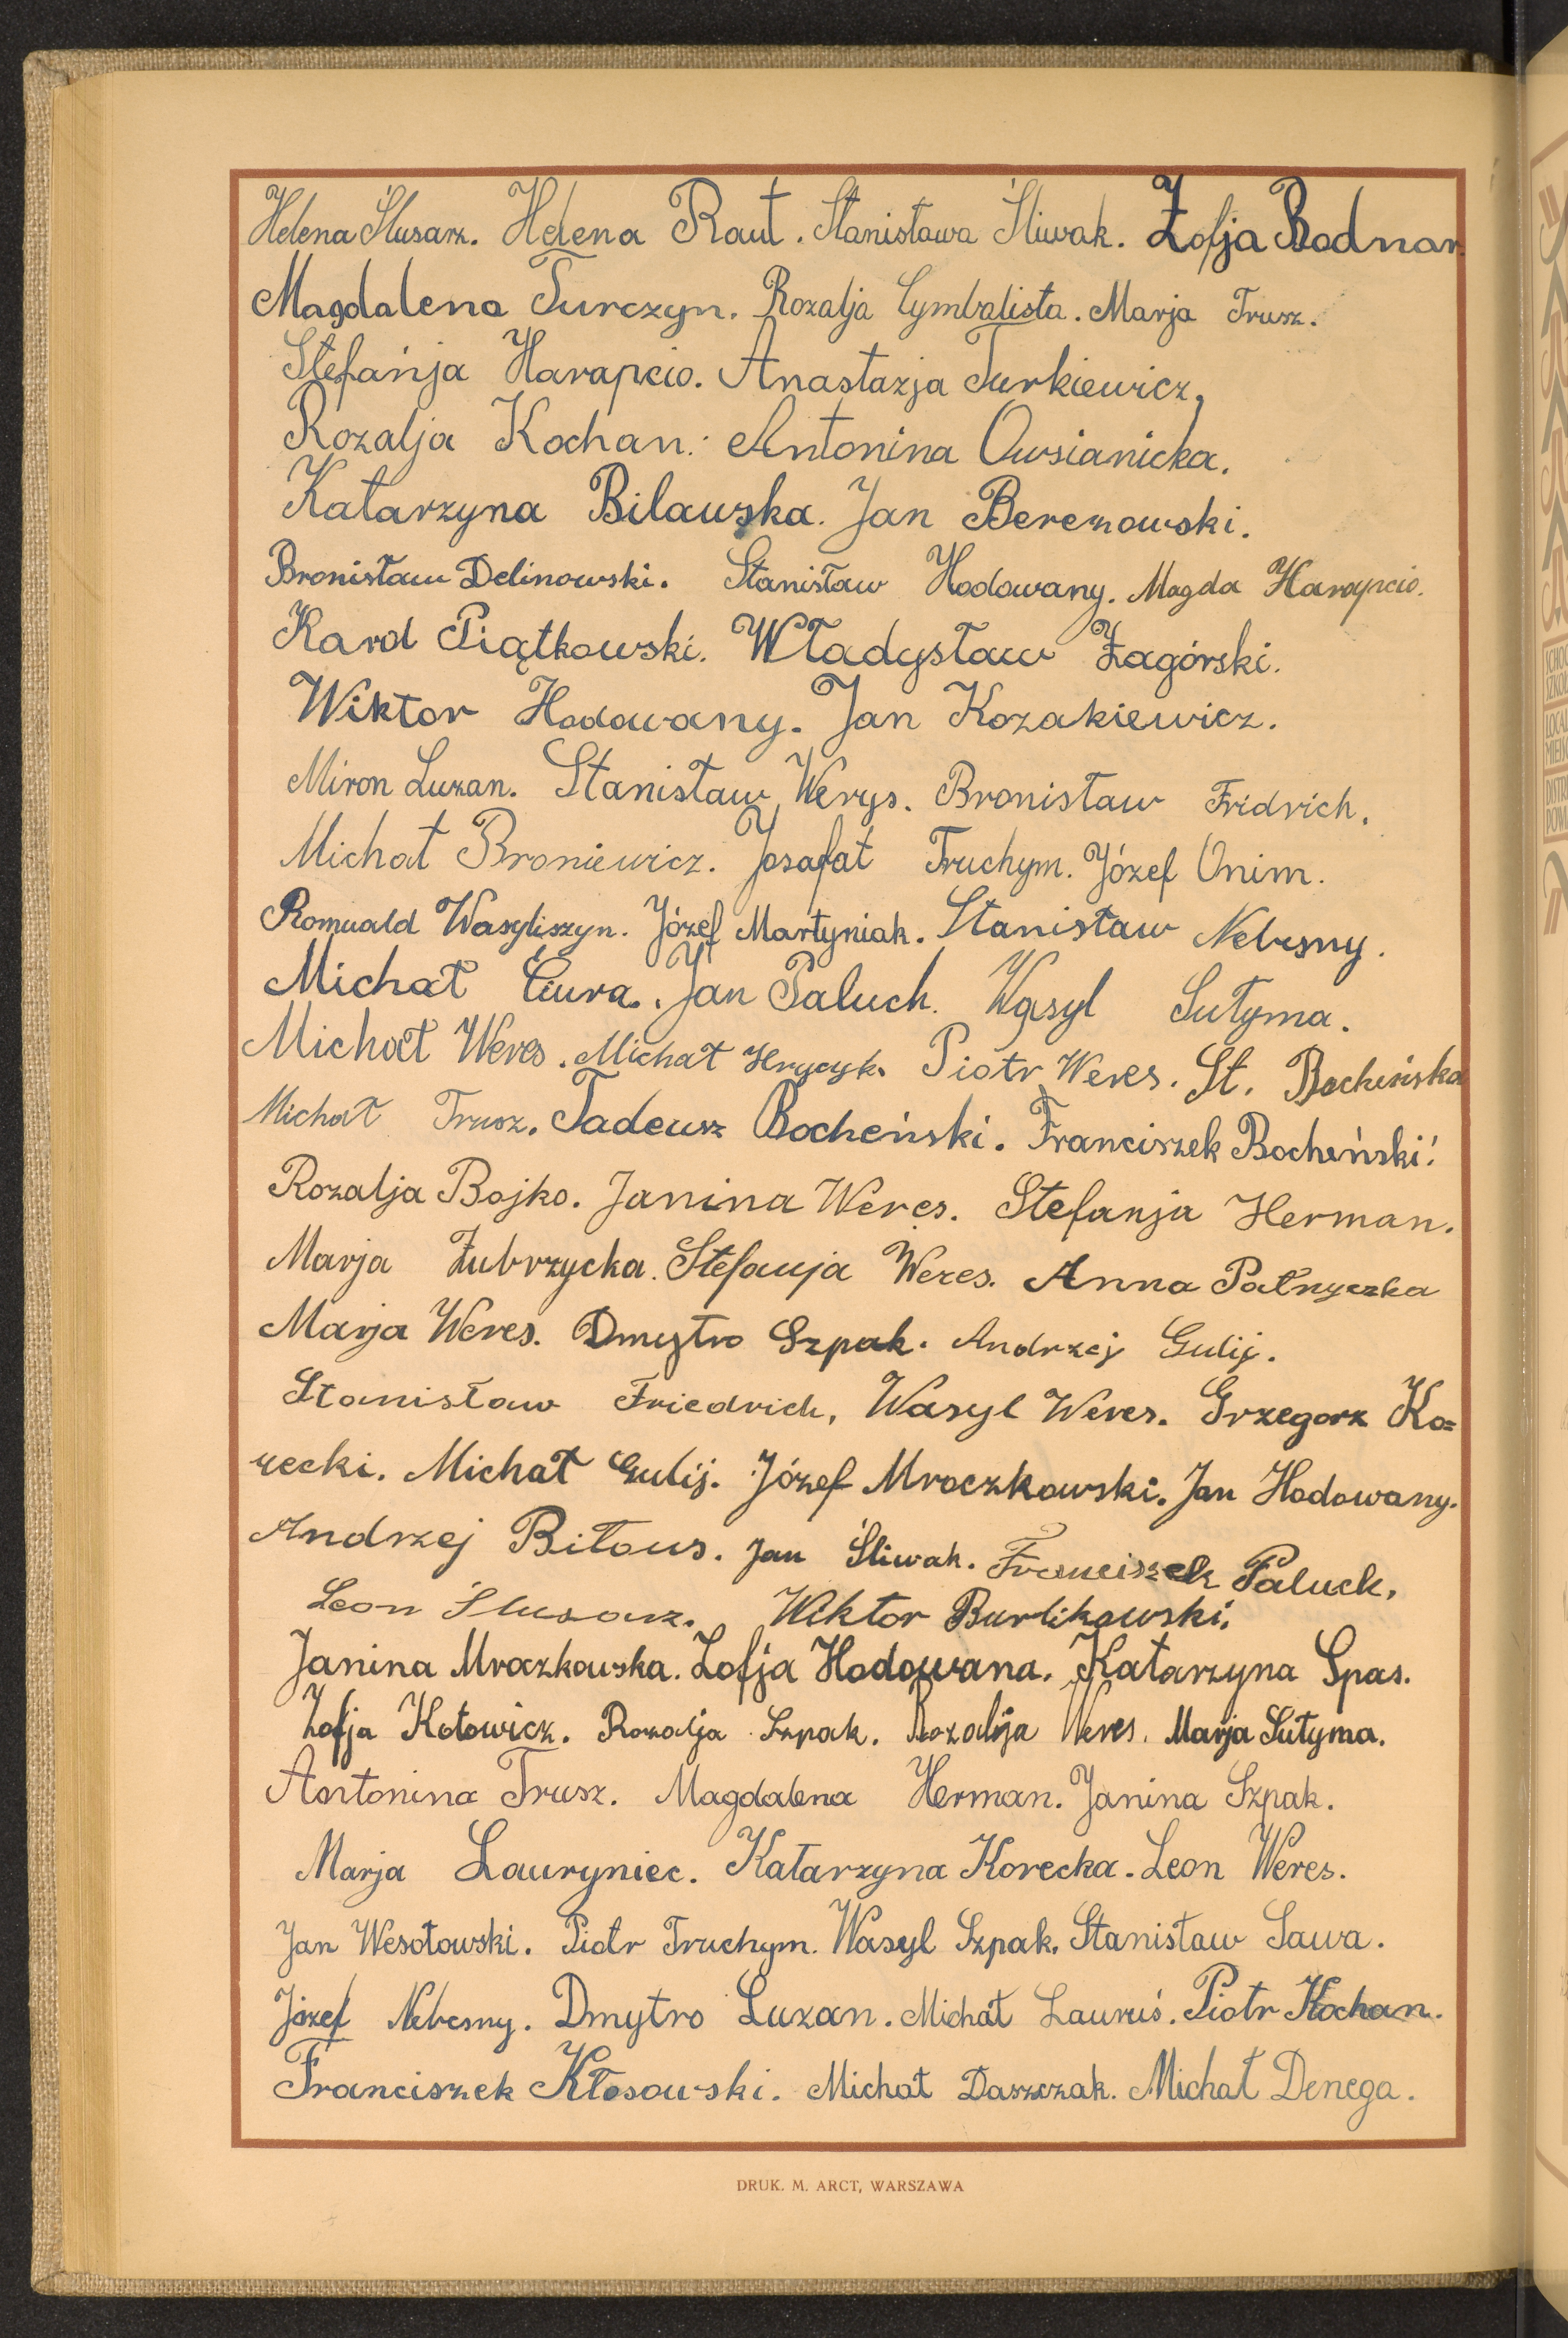 Helena Ślusarz. Helena Raut. Stanisława Śliwak. Zofja Bodnar.
Magdalena Turczyn. Rozalja Cymbalista. Marja Trusz.
Stefanja Harapcio. Anastazja Turkiewicz.
Rozalja Kochan. Antonina Owsianicka.
Katarzyna Bilawska. Jan Berezowski.
Bronisław Delinowski. Stanisław Hodowany. Magda Harapcio.
Karol Piątkowski. Władysław Zagórski.
Wiktor Hodowany. Jan Kozakiewicz.
Miron Luzan. Stanisław Werys. Bronisław Fridrich.
Michał Broniewicz. Josafat Truchym. Józef Onim.
Romuald Wasyliszyn. Józef Martyniak. Stanisław Nebesny.
Michał Ciura. Jan Paluch. Wasyl Sutyma.
Michał Weres. Michał Hrycyk. Piotr Weres. St. Bocheńska
Michał Trusz. Tadeusz Bocheński. Franciszek Bocheński.
Rozalja Bojko. Janina Weres. Stefanja Herman.
Marja Zubrzycka. Stefanja Weres. Anna Patryczka
Marja Weres. Dmytro Szpak. Andrzej Gulij.
Stanisław Friedrich, Wasyl Weres. Grzegorz Ko=
recki. Michał Gulij. Józef Mroczkowski. Jan Hodowany.
Andrzej Biłous. Jan Śliwak. Franciszek Paluch.
Leon Ślusarz. Wiktor Burlikowski.
Janina Mroczkowska. Zofja Hodowana. Katarzyna Spas.
Zofja Kotowicz. Rozalja Szpak. Rozalja Weres. Marja Sutyma.
Antonina Trusz. Magdalena Herman. Janina Szpak.
Marja Lauryniec. Katarzyna Korecka. Leon Weres.
Jan Wesołowski. Piotr Truchym. Wasyl Szpak. Stanisław Sawa.
Józef Nebesny. Dmytro Luzan. Michał Lauruś. Piotr Kochan.
Franciszek Kłosowski. Michał Daszczak. Michał Denega.
DRUK. M. ARCT, WARSZAWA